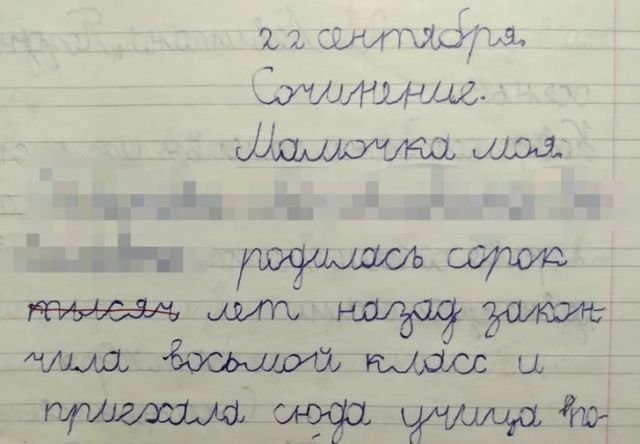 22 сентября.
Сочинение.
Мамочка моя.
родилась сорок
тысяч лет назад закон-
чила восьмой класс и
приехала сюда учица